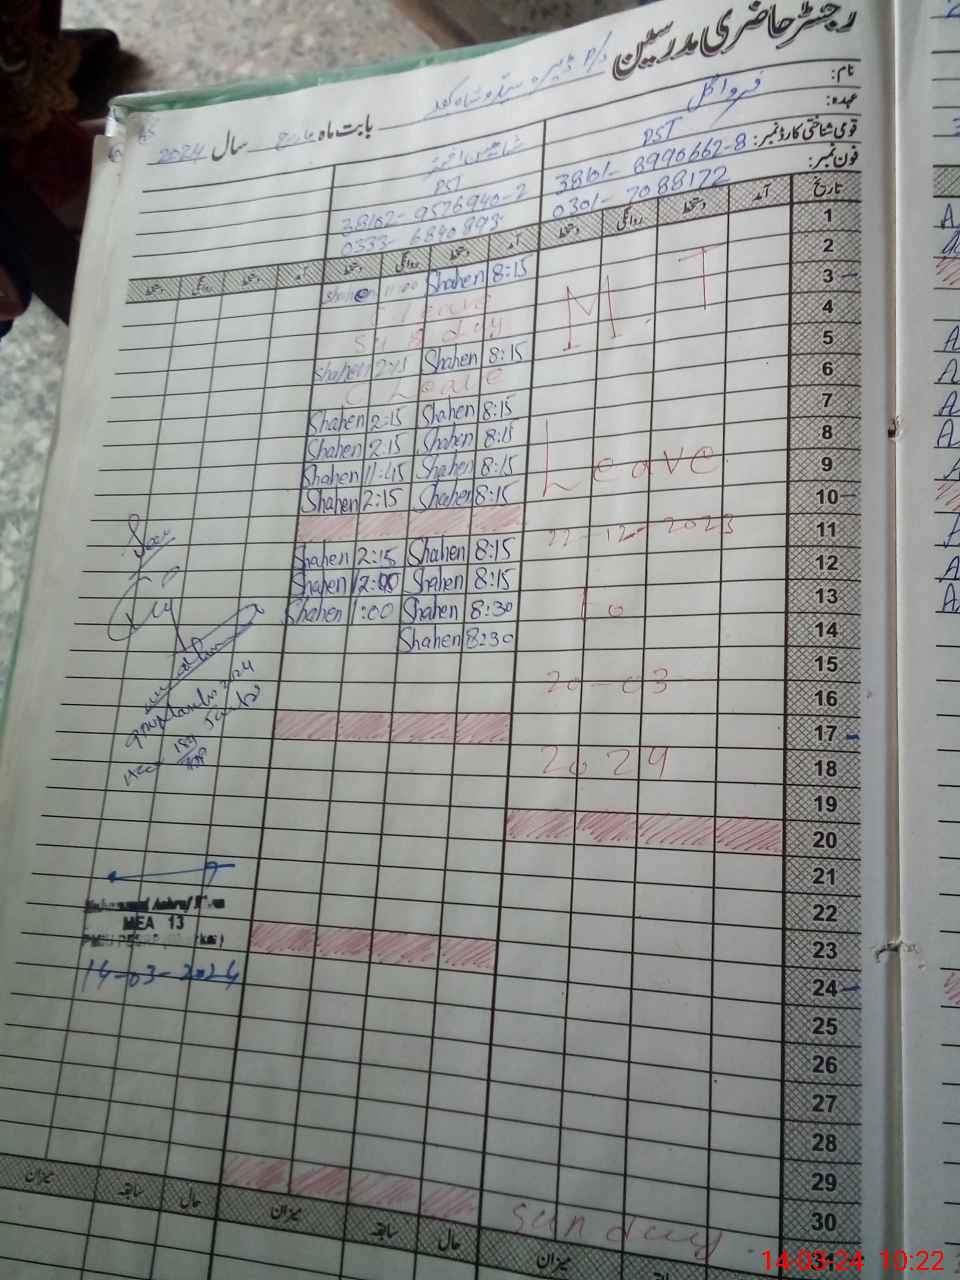 رجسٹر حاضری مدرسین
بابت ماہ مارچ سال 2024
نام:
عہدہ:
PST PST
قومی شناختی کارڈ نمبر: 38101- 8990662-8 38102- 9576940-2
فون نمبر: 0301- 7088172 0333- 6840893
تاریخ آمد دستخط روانگی دستخط آمد دستخط روانگی دستخط آمد دستخط روانگی دستخط
1 8:15 Shahen 11:00 Shahen
2 C Leave
3 Sunday
4 8:15 Shahen 2:15 Shahen
5 C Leave
6 8:15 Shahen 2:15 Shahen
7 8:15 Shahen 2:15 Shahen
8 8:15 Shahen 11:45 Shahen
9 8:15 Shahen 2:15 Shahen
10
11 8:15 Shahen 2:15 Shahen
12 8:15 Shahen 12:00 Shahen
13 8:30 Shahen 1:00 Shahen
14 8:30 Shahen
15
16
17
18
19
20
21
22
23
24
25
26
27
28
29
30
31
M.T
Leave
22-12-2023
To
20-03
2024
Sunday
MEA 13
14-03-2024
میزان سابقہ حال میزان سابقہ حال میزان
14-03-24 10:22